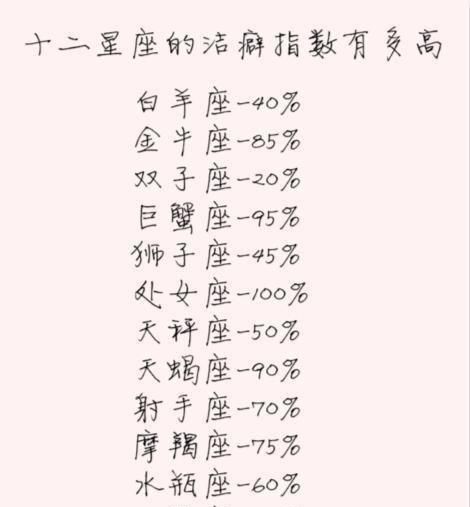 十二星座的洁癖指数有多高
白羊座-40%
金牛座-85%
双子座-20%
巨蟹座-95%
狮子座-45%
处女座-100%
天秤座-50%
天蝎座-90%
射手座-70%
摩羯座-75%
水瓶座-60%